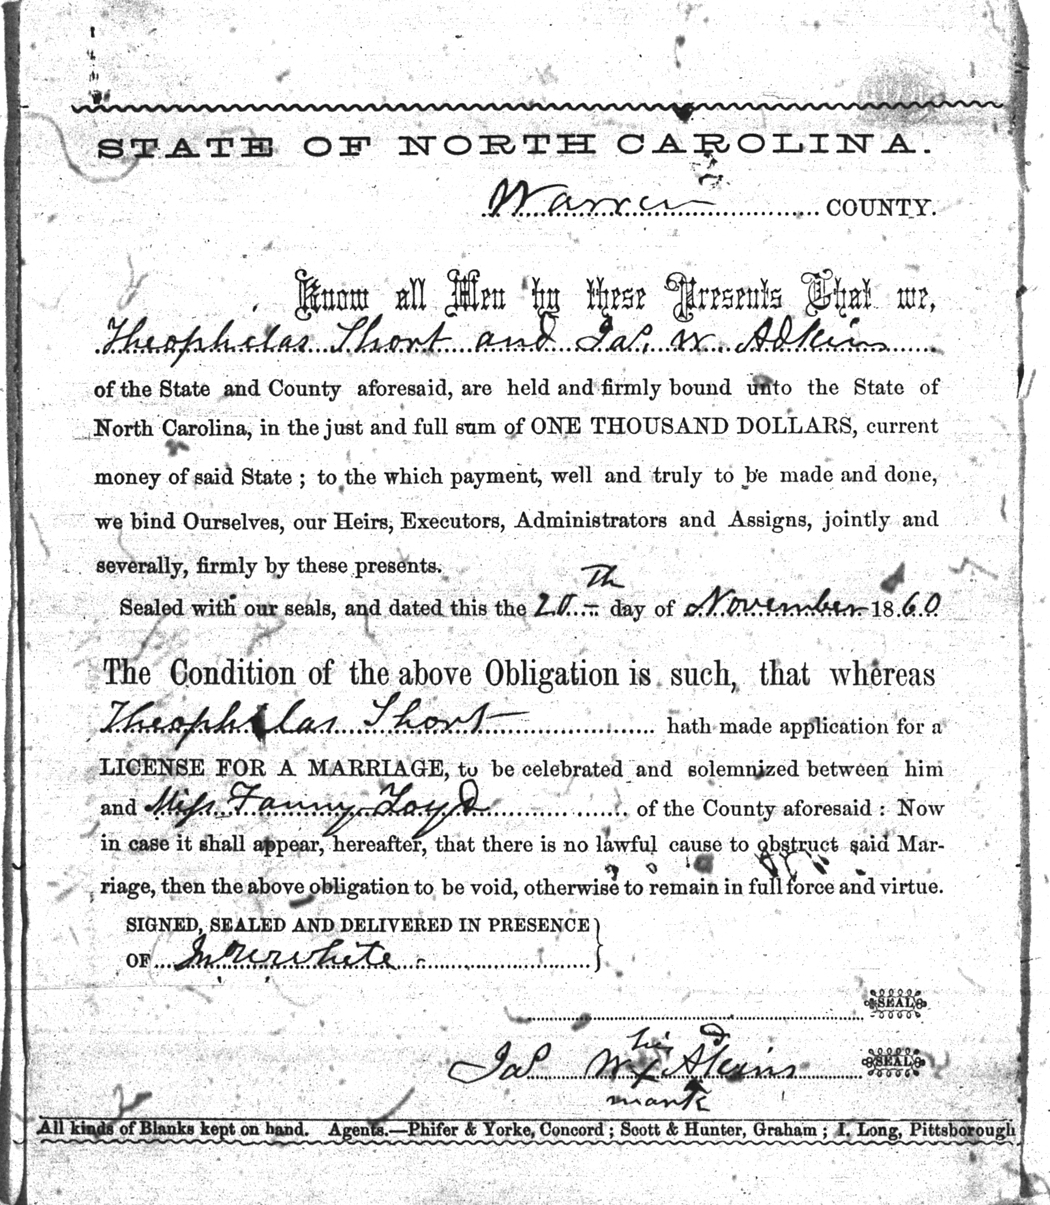 STATE OF NORTH CAROLINA.
Warren COUNTY.
Know all Men by these Presents That we,
Theophelas Short and Jas. W. Adkins
of the State and County aforesaid, are held and firmly bound unto the State of
North Carolina, in the just and full sum of ONE THOUSAND DOLLARS, current
money of said State ; to the which payment, well and truly to be made and done,
we bind Ourselves, our Heirs, Executors, Administrators and Assigns, jointly and
severally, firmly by these presents.
Sealed with our seals, and dated this the 20th day of November 1860
The Condition of the above Obligation is such, that whereas
Theophelas Short hath made application for a
LICENSE FOR A MARRIAGE, to be celebrated and solemnized between him
and Miss Fanny Loyd of the County aforesaid : Now
in case it shall appear, hereafter, that there is no lawful cause to obstruct said Mar-
riage, then the above obligation to be void, otherwise to remain in full force and virtue.
SIGNED, SEALED AND DELIVERED IN PRESENCE
OF White
SEAL
his
Jas W x Adkins SEAL
mark
All kinds of Blanks kept on hand. Agents.—Phifer & Yorke, Concord ; Scott & Hunter, Graham ; I. Long, Pittsborough